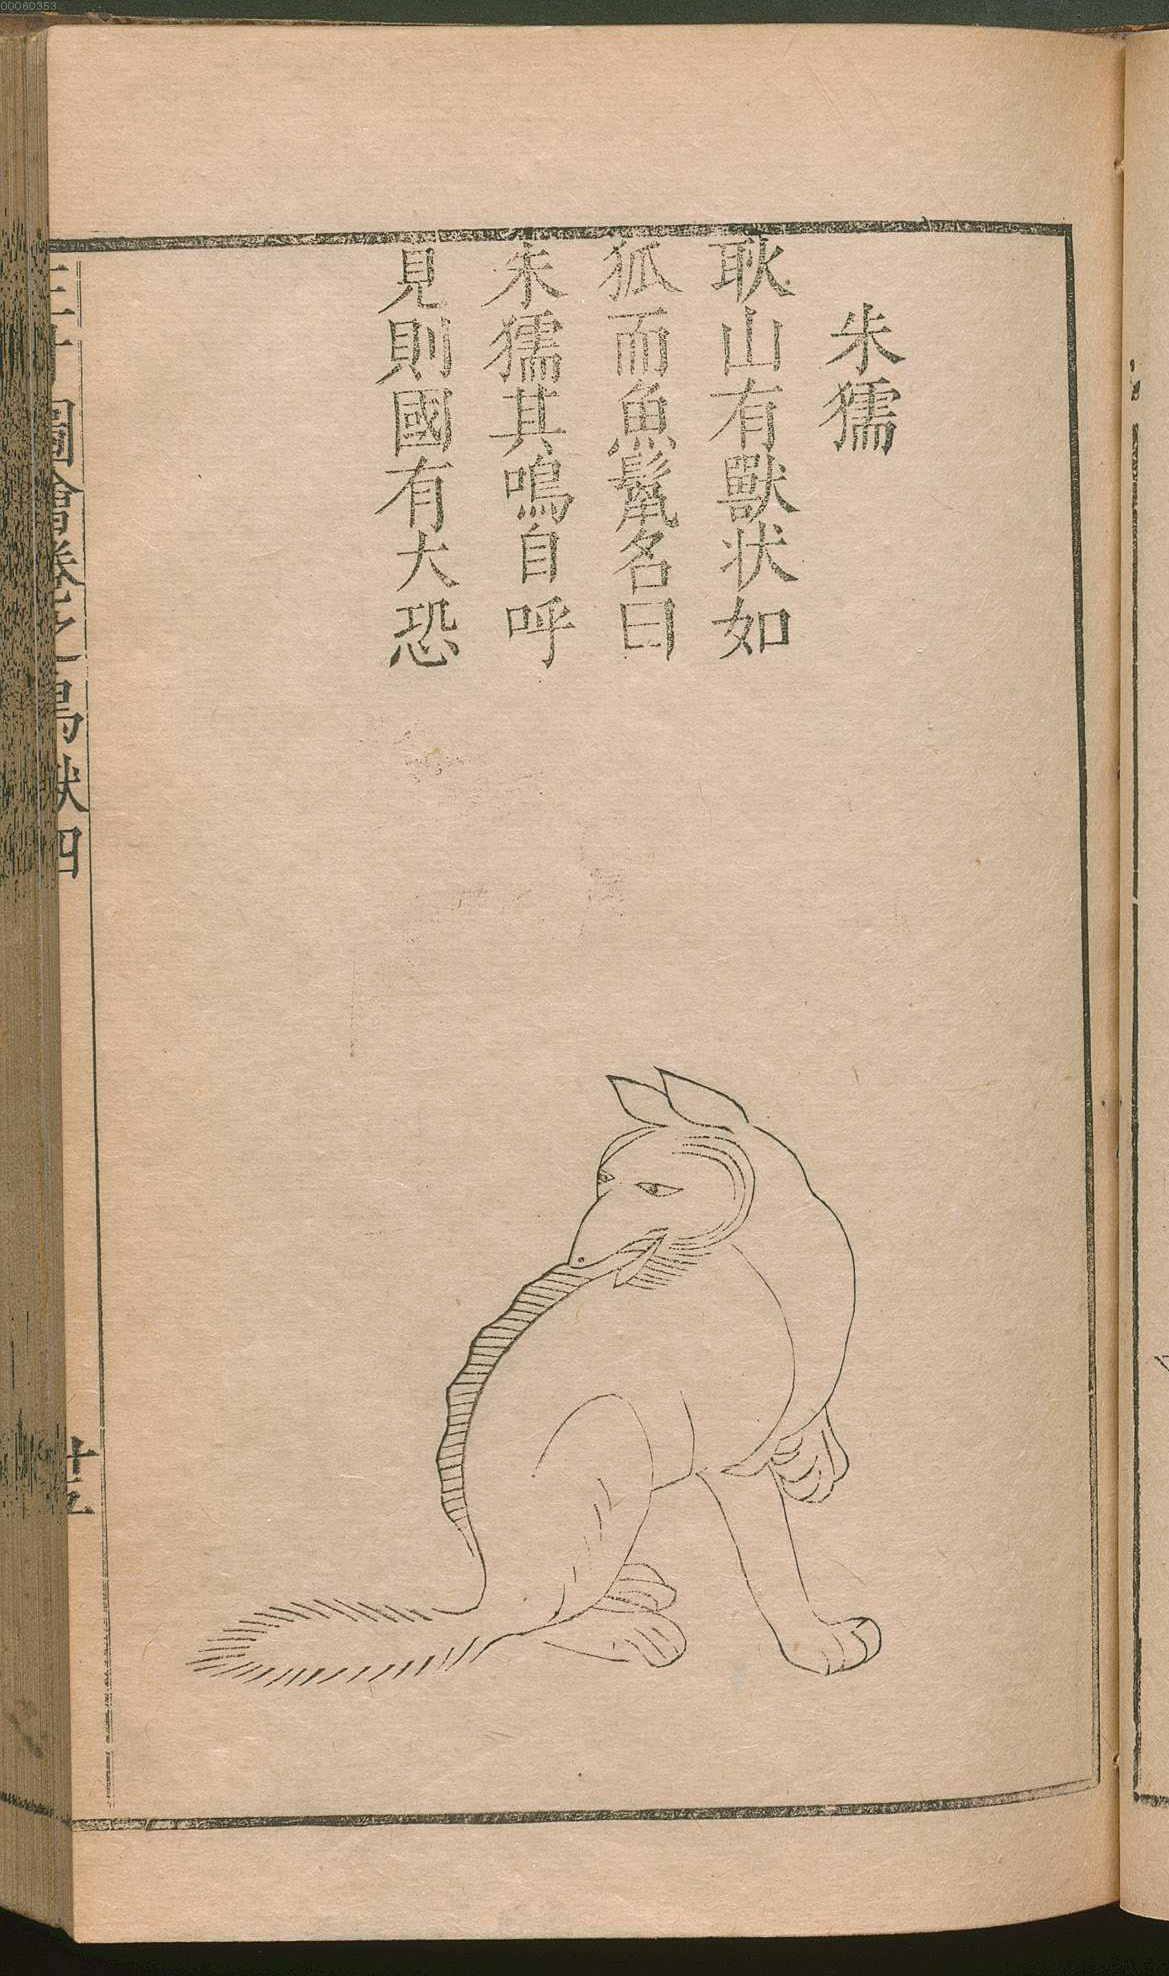 00060353
朱獳
耿山有獸状如
狐而魚鬣名曰
朱獳其鳴自呼
見則國有大恐
圖會卷之 鳥獸四
廿五